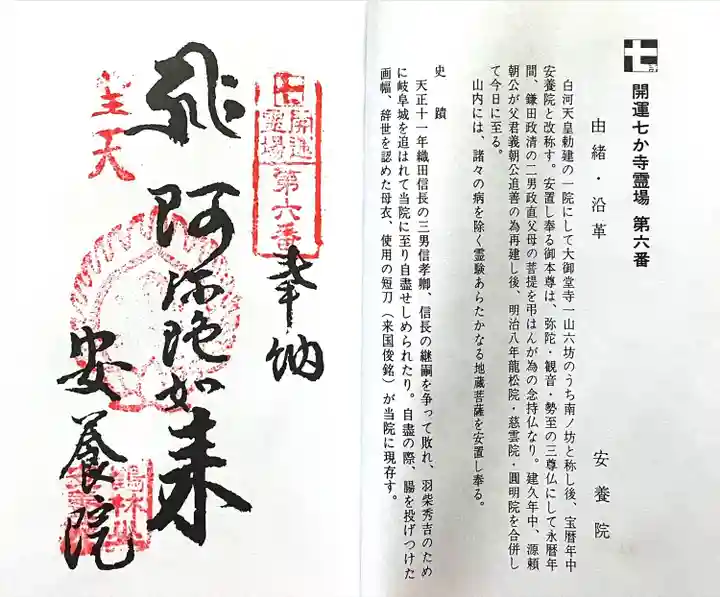 開運七か寺霊場 第六番
由緒・沿革 安養院
白河天皇勅建の一院にして大御堂寺一山六坊のうち南ノ坊と称し後、宝暦年中
安養院と改称す。安置し奉る御本尊は、弥陀・観音・勢至の三尊仏にして永暦年
間、鎌田政清の二男政直父母の菩提を弔はんが為の念持仏なり。建久年中、源頼
朝公が父君義朝公追善の為再建し後、明治八年龍松院・慈雲院・圓明院を合併し
て今日に至る。
山内には、諸々の病を除く霊験あらたかなる地蔵菩薩を安置し奉る。
史蹟
天正十一年織田信長の三男信孝卿、信長の継嗣を争って敗れ、羽柴秀吉のため
に岐阜城を追はれて当院に至り自盡せしめられたり。自盡の際、腸を投げつけた
画幅、辞世を認めた母衣、使用の短刀（来国俊銘）が当院に現存す。
奉納
開運
霊場
第六番
阿弥陀如来
安養院